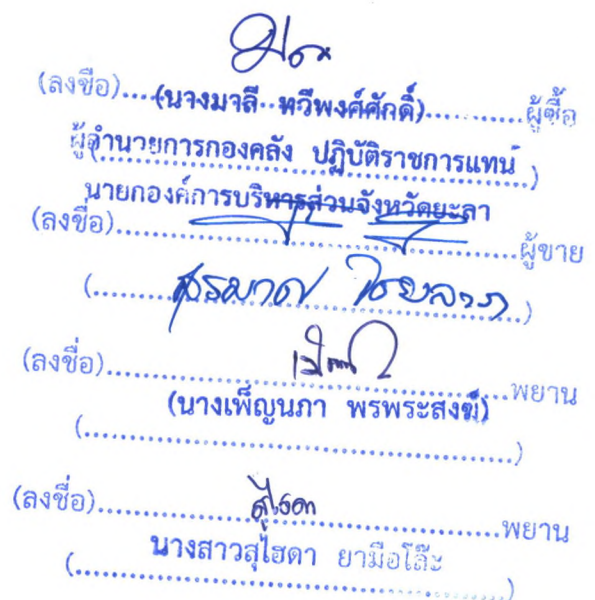 (ลงชื่อ)..............................ผู้ซื้อ
(นางมาลี ทวีพงศ์ศักดิ์)
ผู้อำนวยการกองคลัง ปฏิบัติราชการแทน
(..............................)
นายกองค์การบริหารส่วนจังหวัดยะลา
(ลงชื่อ)..............................ผู้ขาย
(..............................)
(ลงชื่อ)..............................พยาน
(นางเพ็ญนภา พรพระสงฆ์)
(..............................)
(ลงชื่อ)..............................พยาน
นางสาวสุไฮดา ยามือโล๊ะ
(..............................)